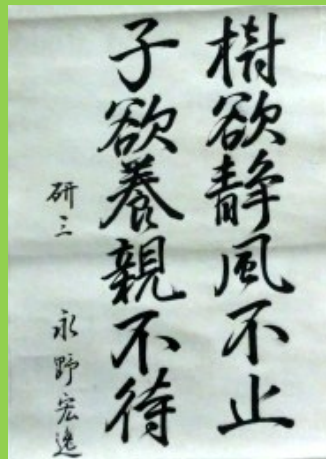 樹欲静風不止
子欲養親不待
研三 永野宏逸